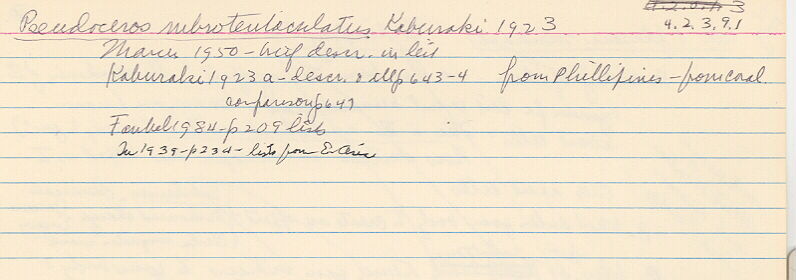 Pseudoceros rubrotentaculatus Kaburaki 1923
4.2.3.9.1
Marcus 1950 - brief descr. in list
Kaburaki 1923a - descr. & ill p643-4 from Phillipines - from coral
comparison p647
Faubel 1984 - p209 lists
1939 - p23 - lists from